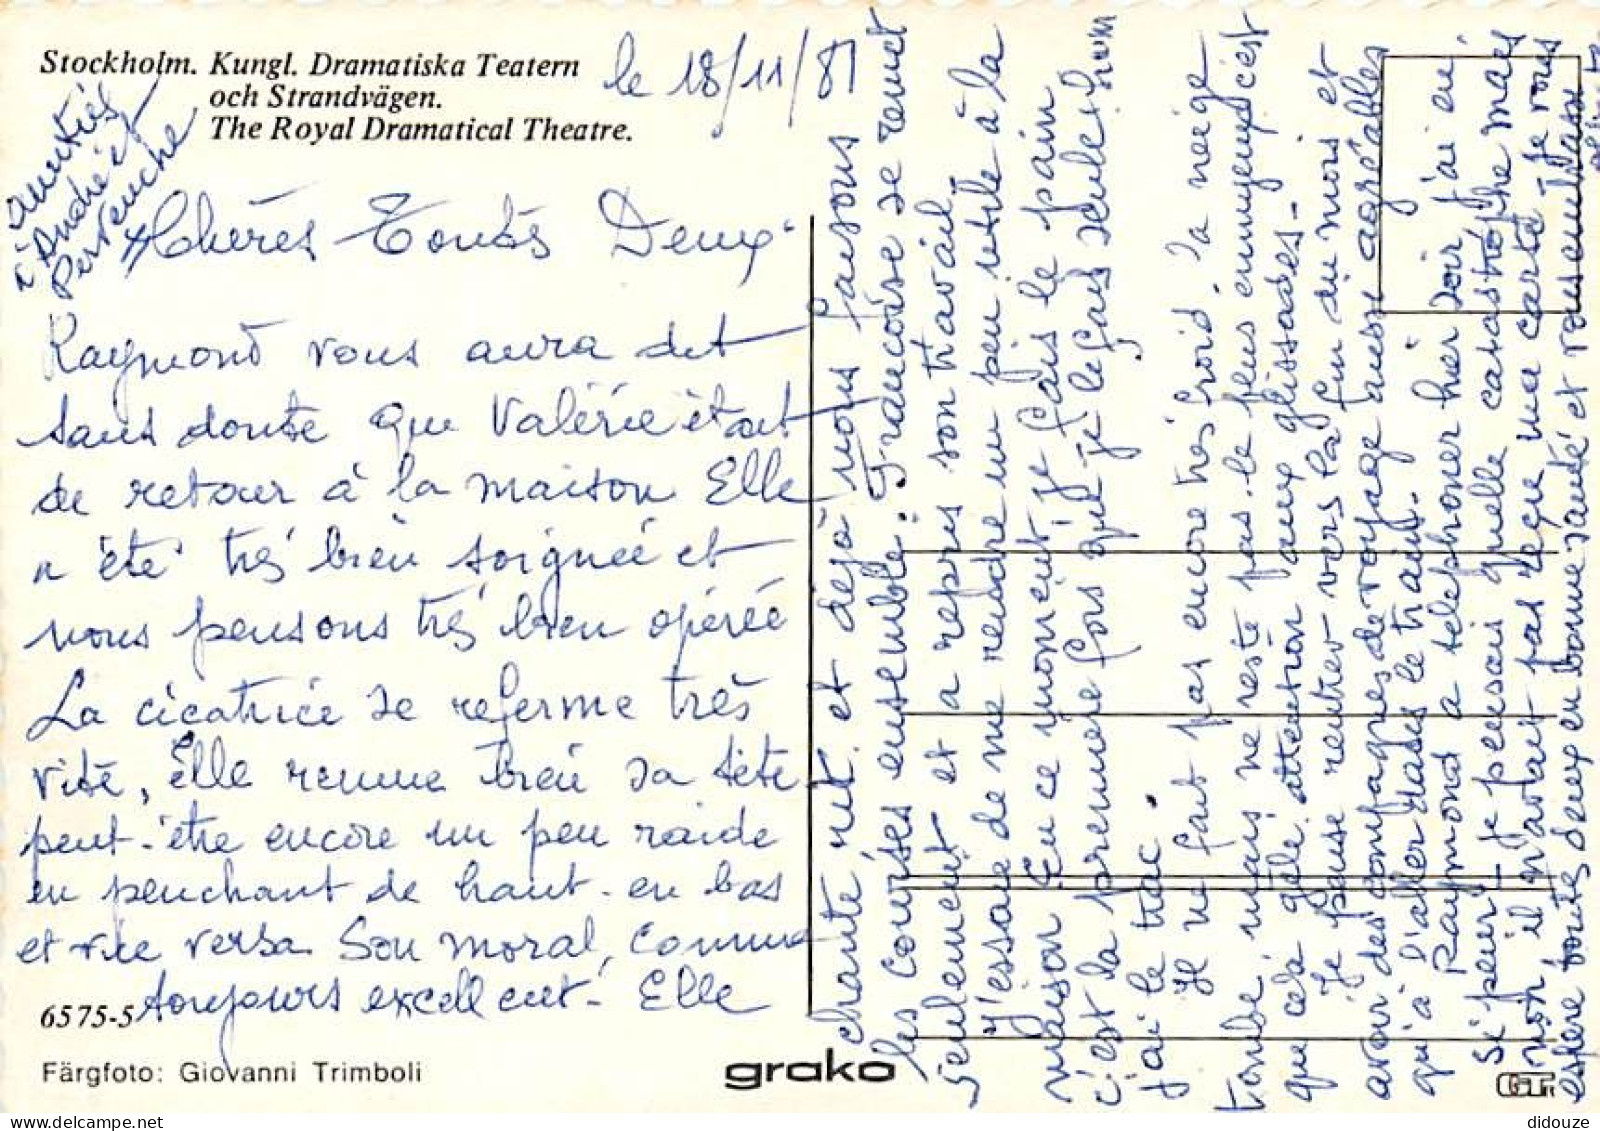 Stockholm. Kungl. Dramatiska Teatern
och Strandvägen.
The Royal Dramatical Theatre.
le 18/11/81
Chères Toutes Deux
Raymond vous aura dit
sans doute que Valérie était
de retour à la maison Elle
a été très bien soignée et
nous pensons très bien opérée
La cicatrice se referme très
vite, Elle remue bien sa tête
peut-être encore un peu raide
en penchant de haut en bas
et vice versa Son moral, comme
toujours excellent. Elle
chante et déjà nous faisons
les courses ensemble. Françoise se remet
seulement et a repris son travail.
J'essaie de me rendre un peu utile à la
maison En ce moment je fais le pain
c'est la première fois que je le fais seule
j'ai le trac.
Il ne fait pas encore très froid. la neige
tombe, mais ne reste pas. le plus ennuyeux c'est
que cela gèle. attention aux glissades.
Je pense rentrer vers la fin du mois et
avoir des compagnes de voyage aussi agréables
qu'à l'aller dans le train.
Raymond a telephoner hier soir, j'ai eu
si peur, je pensais quelle catastrophe mais
non, il n'avait pas reçu ma carte. Je vous
espère toutes deux en bonne santé et vous embrasse
amitiés
à Andrée et
Pervenche
6575-5
Färgfoto: Giovanni Trimboli
grako
didouze